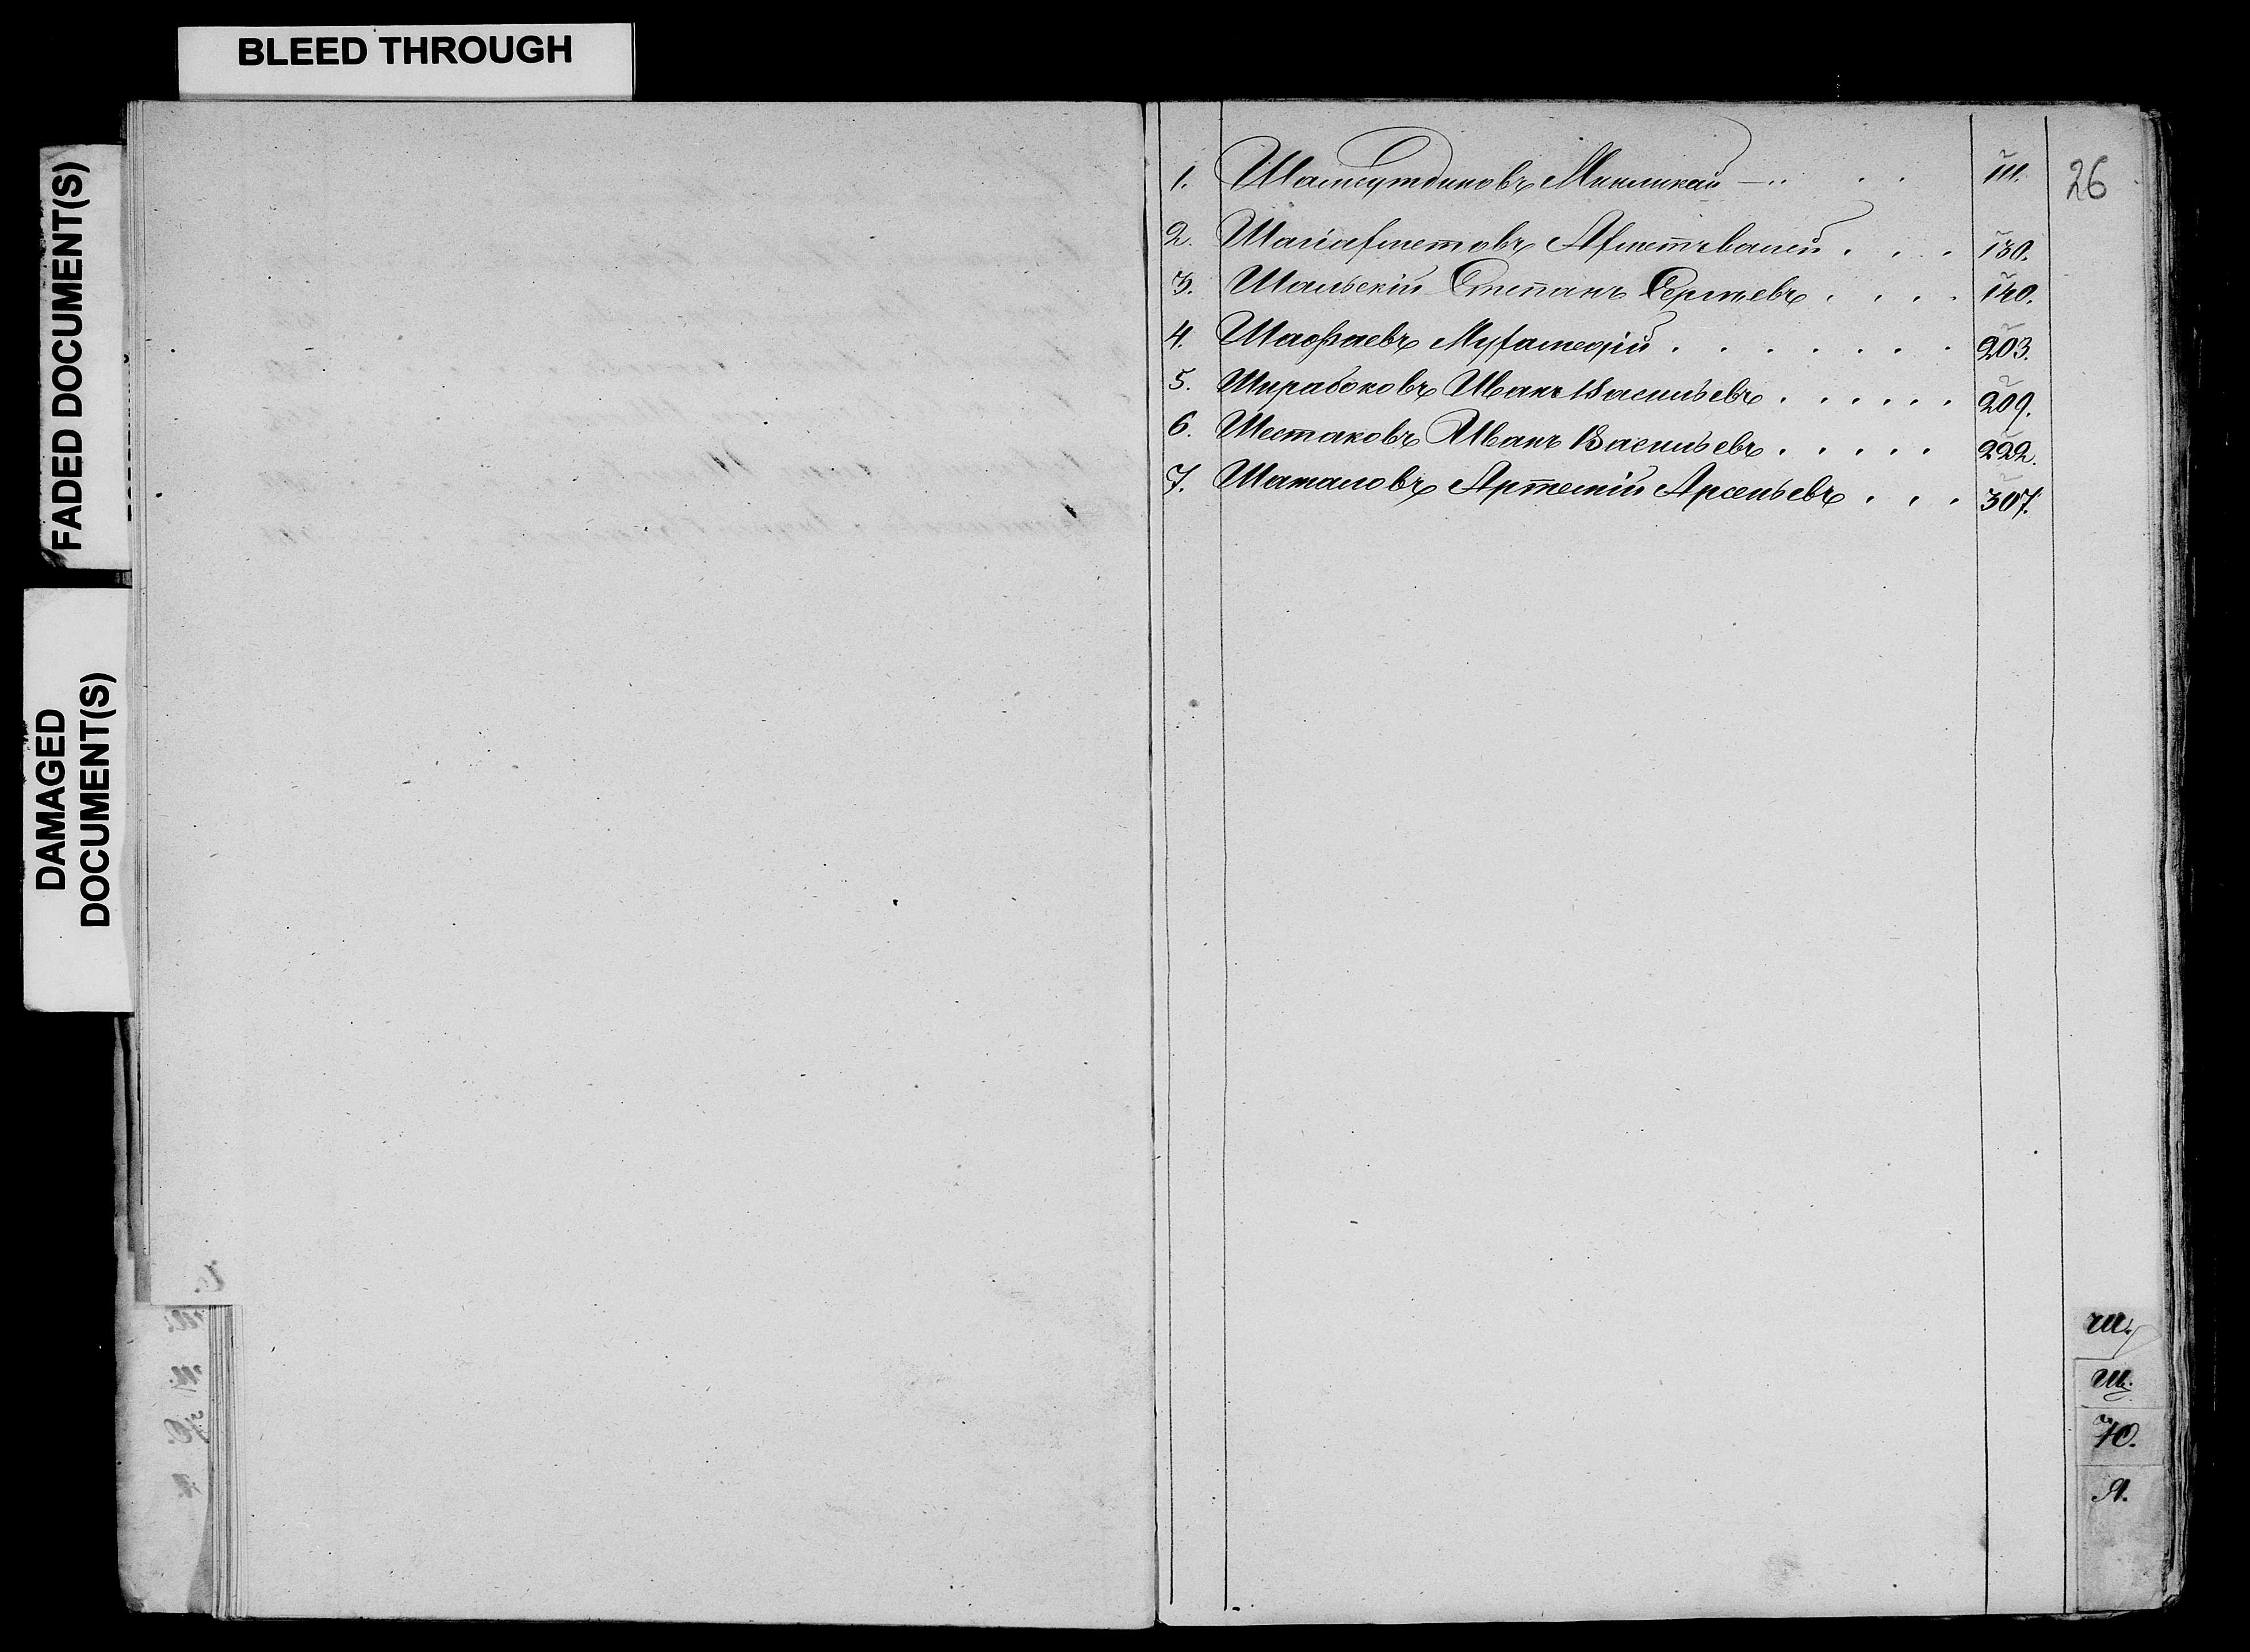 BLEED THROUGH
FADED DOCUMENT(S)
DAMAGED
DOCUMENT(S)
26
1. Шамсутдиновъ Минликай 111.
2. Шагіахметовъ Ахметвалей 130.
3. Шальскій Степанъ Сергѣевъ 140.
4. Шафаевъ 203.
5. Ширабоковъ Иванъ Васильевъ 209.
6. Шестаковъ Иванъ Васильевъ 222.
7. Шаталовъ Артемій Арсеньевъ 307.
Ш.
Щ.
Ю.
Я.